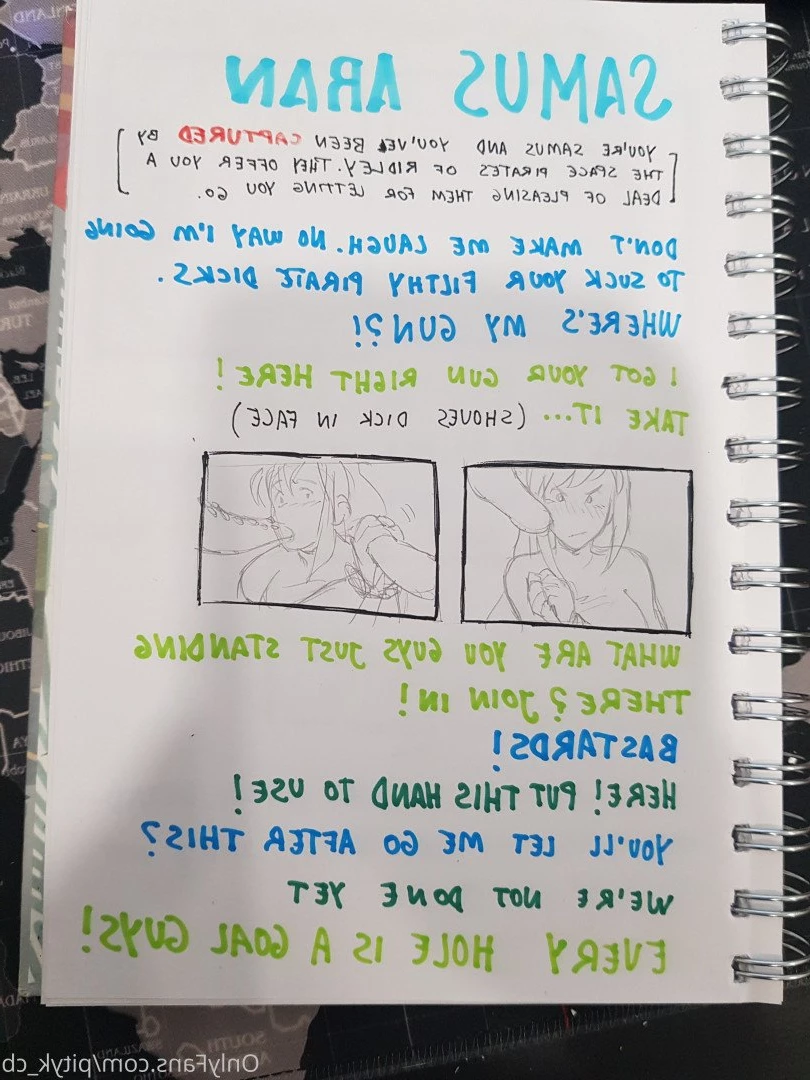 SAMUS ARAN
[YOU'RE SAMUS AND YOU'VE BEEN CAPTURED BY
THE SPACE PIRATES OF RIDLEY. THEY OFFER YOU A
DEAL OF PLEASING THEM FOR LETTING YOU GO.]
DON'T MAKE ME LAUGH. NO WAY I'M GOING
TO SUCK YOUR FILTHY PIRATE DICKS.
WHERE'S MY GUN?!
I GOT YOUR GUN RIGHT HERE!
TAKE IT... (SHOVES DICK IN FACE)
WHAT ARE YOU GUYS JUST STANDING
THERE? JOIN IN!
BASTARDS!
HERE! PUT THIS HAND TO USE!
YOU'LL LET ME GO AFTER THIS?
WE'RE NOT DONE YET
EVERY HOLE IS A GOAL GUYS!
OnlyFans.com/pityk_cb